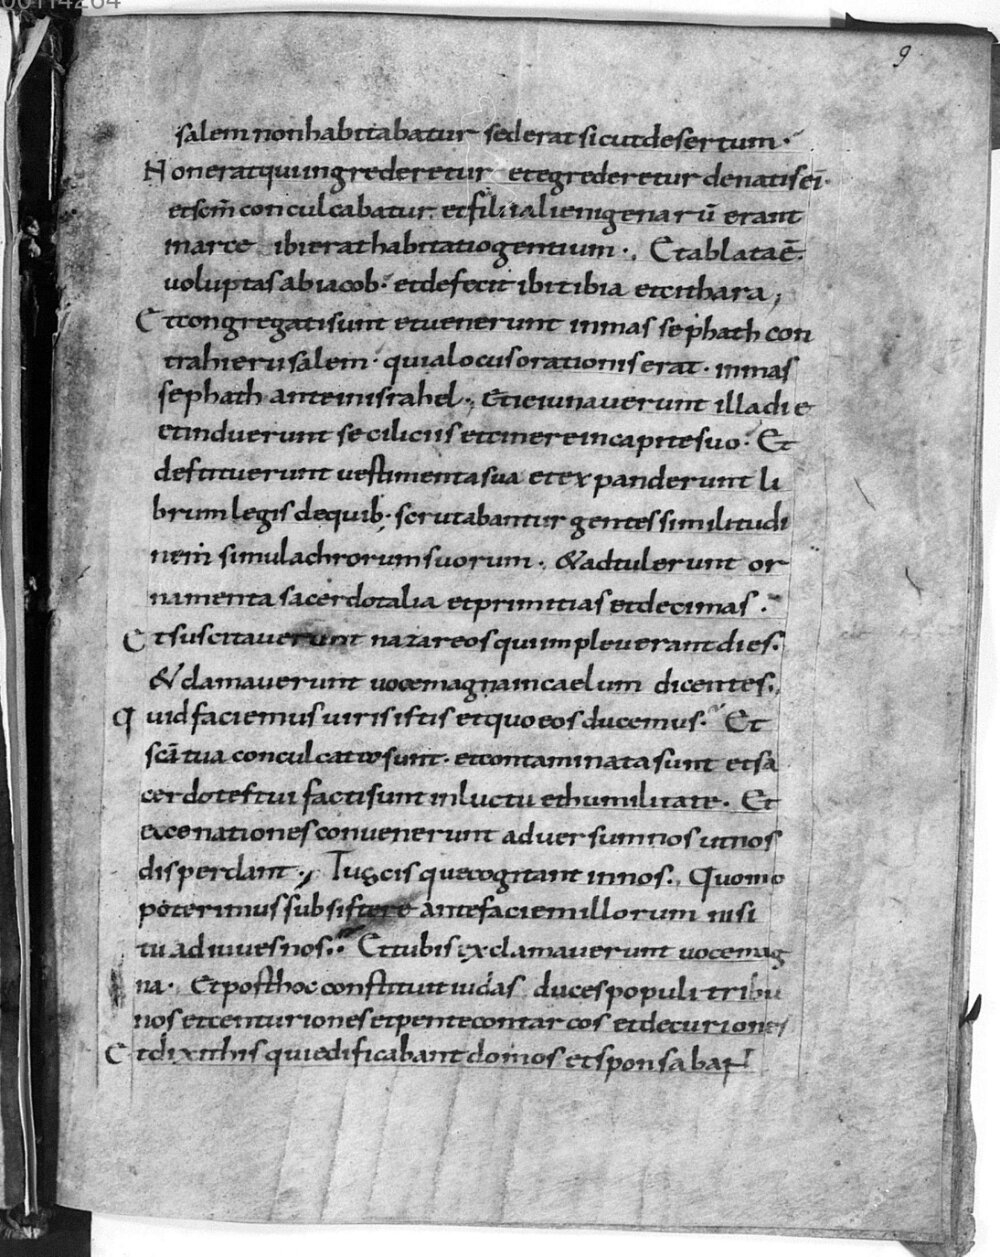 00114264
9
salem non habitabatur sed erat sicut desertum·
Non erat qui ingrederetur et egrederetur de natis ei·
et scm̄ conculcabatur· et filii alienigenarū erant
in arce ibi erat habitatio gentium·, Et ablata ē·
voluptas ab iacob· et defecit ibi tibia et cithara;
Et congregati sunt et venerunt in masephath con
tra hierusalem· quia locus orationis erat· in mas
sephath ante in israhel·, Et ieiunaverunt illa die
et induerunt se ciliciis et cinere in capite suo· Et
destituerunt vestimenta sua et expanderunt li
brum legis de quib; scrutabantur gentes similitudi
nem simulachrorum suorum· & adtulerunt or
namenta sacerdotalia et primitias et decimas·
Et suscitaverunt nazareos qui impleverant dies·
& clamaverunt voce magna in caelum dicentes·,
Quid faciemus viris istis et quo eos ducemus· Et
scā tua conculcata sunt· et contaminata sunt et sa
cerdotes tui facti sunt in luctu et humilitate· Et
ecce nationes convenerunt adversum nos ut nos
disperdant·, Tu scis que cogitant in nos·, Quomo
poterimus subsistere ante faciem illorum nisi
tu adiuves nos·· Et tubis exclamaverunt voce mag
na· Et post hoc constituit iudas duces populi tribu
nos et centuriones et pentecontarcos et decuriones
Et dixit his qui edificabant domos et sponsabant